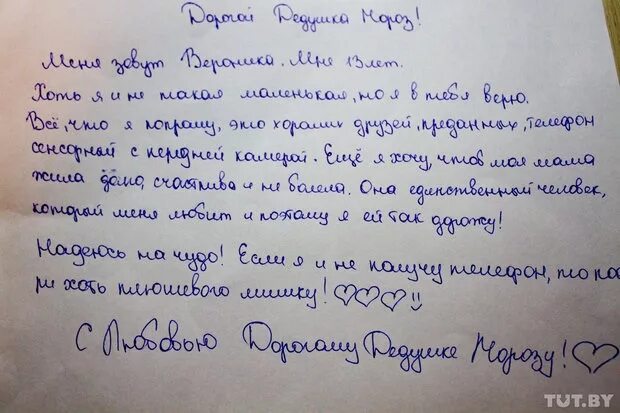 Дорогой Дедушка Мороз!
Меня зовут Вероника. Мне 13 лет.
Хоть я и не такая маленькая, но я в тебя верю.
Всё, что я попрошу, это хороших друзей, преданных, телефон
сенсорный с передней камерой. Ещё я хочу, чтоб моя мама
жила дома, счастлива и не болела. Она единственный человек,
который меня любит и поэтому я ей так дорожу!
Надеюсь на чудо! Если я и не получу телефон, то пода
ри хоть плюшевого мишку! ♡♡♡ :)
С Любовью Дорогому Дедушке Морозу! ♡
TUT.BY